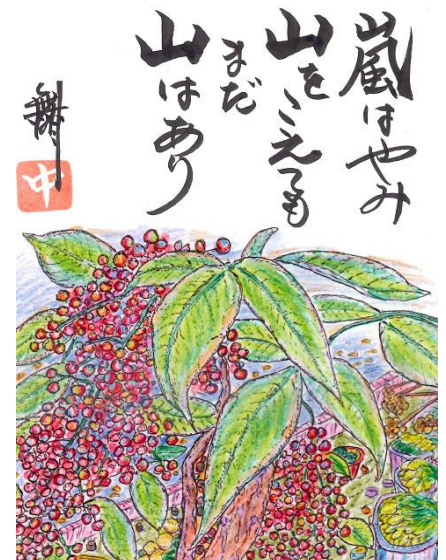 嵐はやみ
山をこえても
まだ
山はあり
中